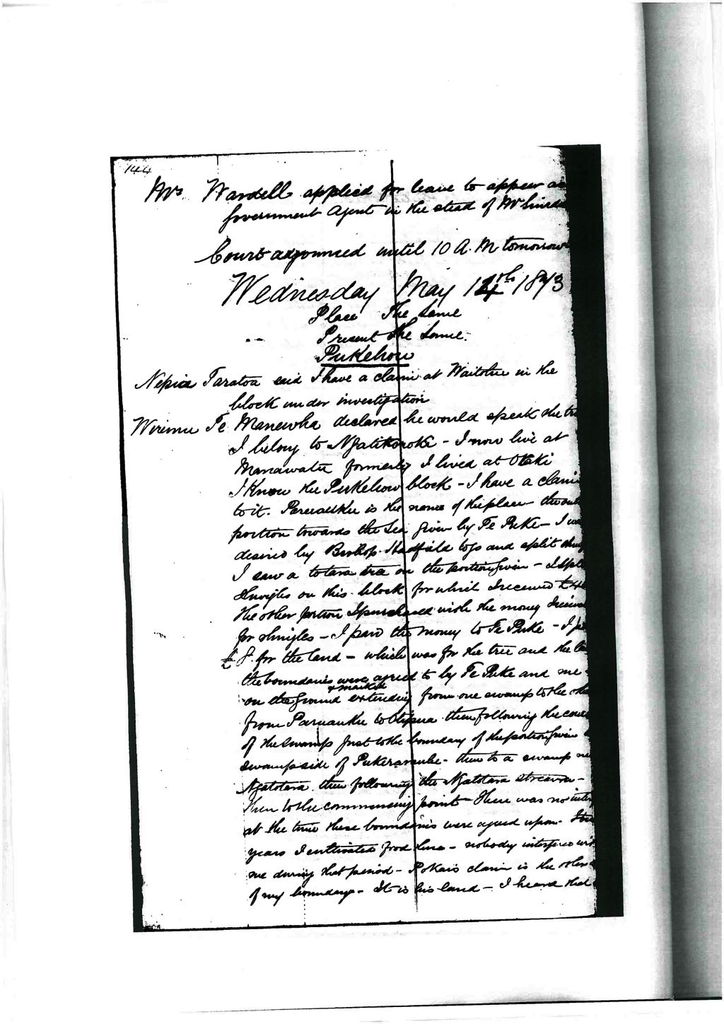 144
Mr Wardell applied for leave to appear as
Government Agent in the stead of Mr
Court adjourned until 10 A.M tomorrow
Wednesday May 14th 1873
Place The Same
Present the Same.
Pukehou
Nepia Taratoa said I have a claim at in the
block under investigation
Wirimu Te Manewha declared he would speak the
I belong to Ngatikoroki - I now live at
Manawatu formerly I lived at Otaki
I Know the Pukehou block - I have a claim
to it. is the name of the place - the
portion towards the Sea given by Te Puke - I was
desired by Bishop Hadfield to go and split
I saw a totara tree on the portion given - I split
Shingles on this block for which I received
the other portion I purchased with the money
for shingles - I paid the money to Te Puke - I
£8. for the land - which was for the tree and the
the boundaries were agreed to by Te Puke and me
on the ground & marked extending from one swamp to the
from to then following the
of the Swamp to the boundary of the portion given
swamp side of - then to a swamp
Ngatotara then following the Ngatotara stream -
then to the commencing point - There was no
at the time these boundaries were agreed upon -
years I cultivated food here - nobody interfered
me during that period - claim is the
of my boundary - It is his land - I heard that